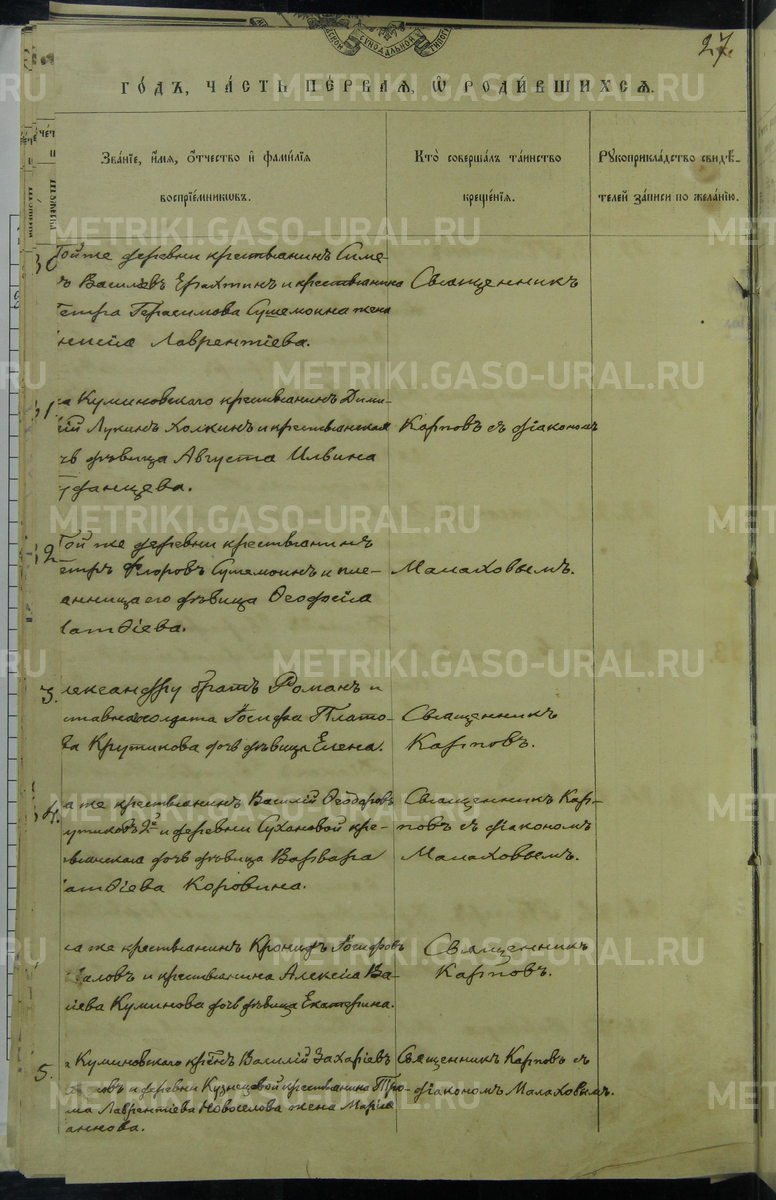 СУНОДАЛЬНОЙ
27.
ГОДЪ, ЧАСТЬ ПЕРВАЯ, Ѡ РОДИВШИХСЯ.
Званіе, имя, отчество и фамилія
воспріемниковъ.
Кто совершалъ таинство
крещенія.
Рукоприкладство свидѣ-
телей записи по желанію.
Той же деревни крестьянинъ Симе-
ъ Васильевъ Ерахтинъ и крестьянина
етра Герасимова Сушемоина жена
нисія Лаврентіева.
Священникъ
а Куминовскаго крестьянинъ Дими-
рій Лукинъ Холкинъ и крестьянская
чь дѣвица Августа Ильина
Карповъ съ діакономъ
2
Той же деревни крестьянинъ
етръ Ѳедоровъ Сушемоинъ и пле-
янница его дѣвица Ѳеофсіла
атѳіева.
Малаховымъ.
3.
лександру братъ Романъ и
ставнаго солдата Іосифа Плато-
ва Крутикова дочь дѣвица Елена.
Священникъ
Карповъ.
4.
а же крестьянинъ Василій Ѳеодоровъ
рутиковъ 2й и деревни Сухановой кре-
тьянская дочь дѣвица Варвара
атѳіева Коровина.
Священникъ Кар-
повъ съ діакономъ
Малаховымъ.
ла же крестьянинъ Кронидъ Іосифовъ
и крестьянина Алексія Ва-
ліева Куминова дочь дѣвица Екатерина.
Священникъ
Карповъ.
5.
Куминовскаго крест̃нъ Василій Захаріевъ
овъ и деревни Кузнецовой крестьянина Тро-
ма Лаврентіева Новоселова жена Марія
аннова.
Священникъ Карповъ съ
діакономъ Малаховымъ.
METRIKI.GASO-URAL.RU